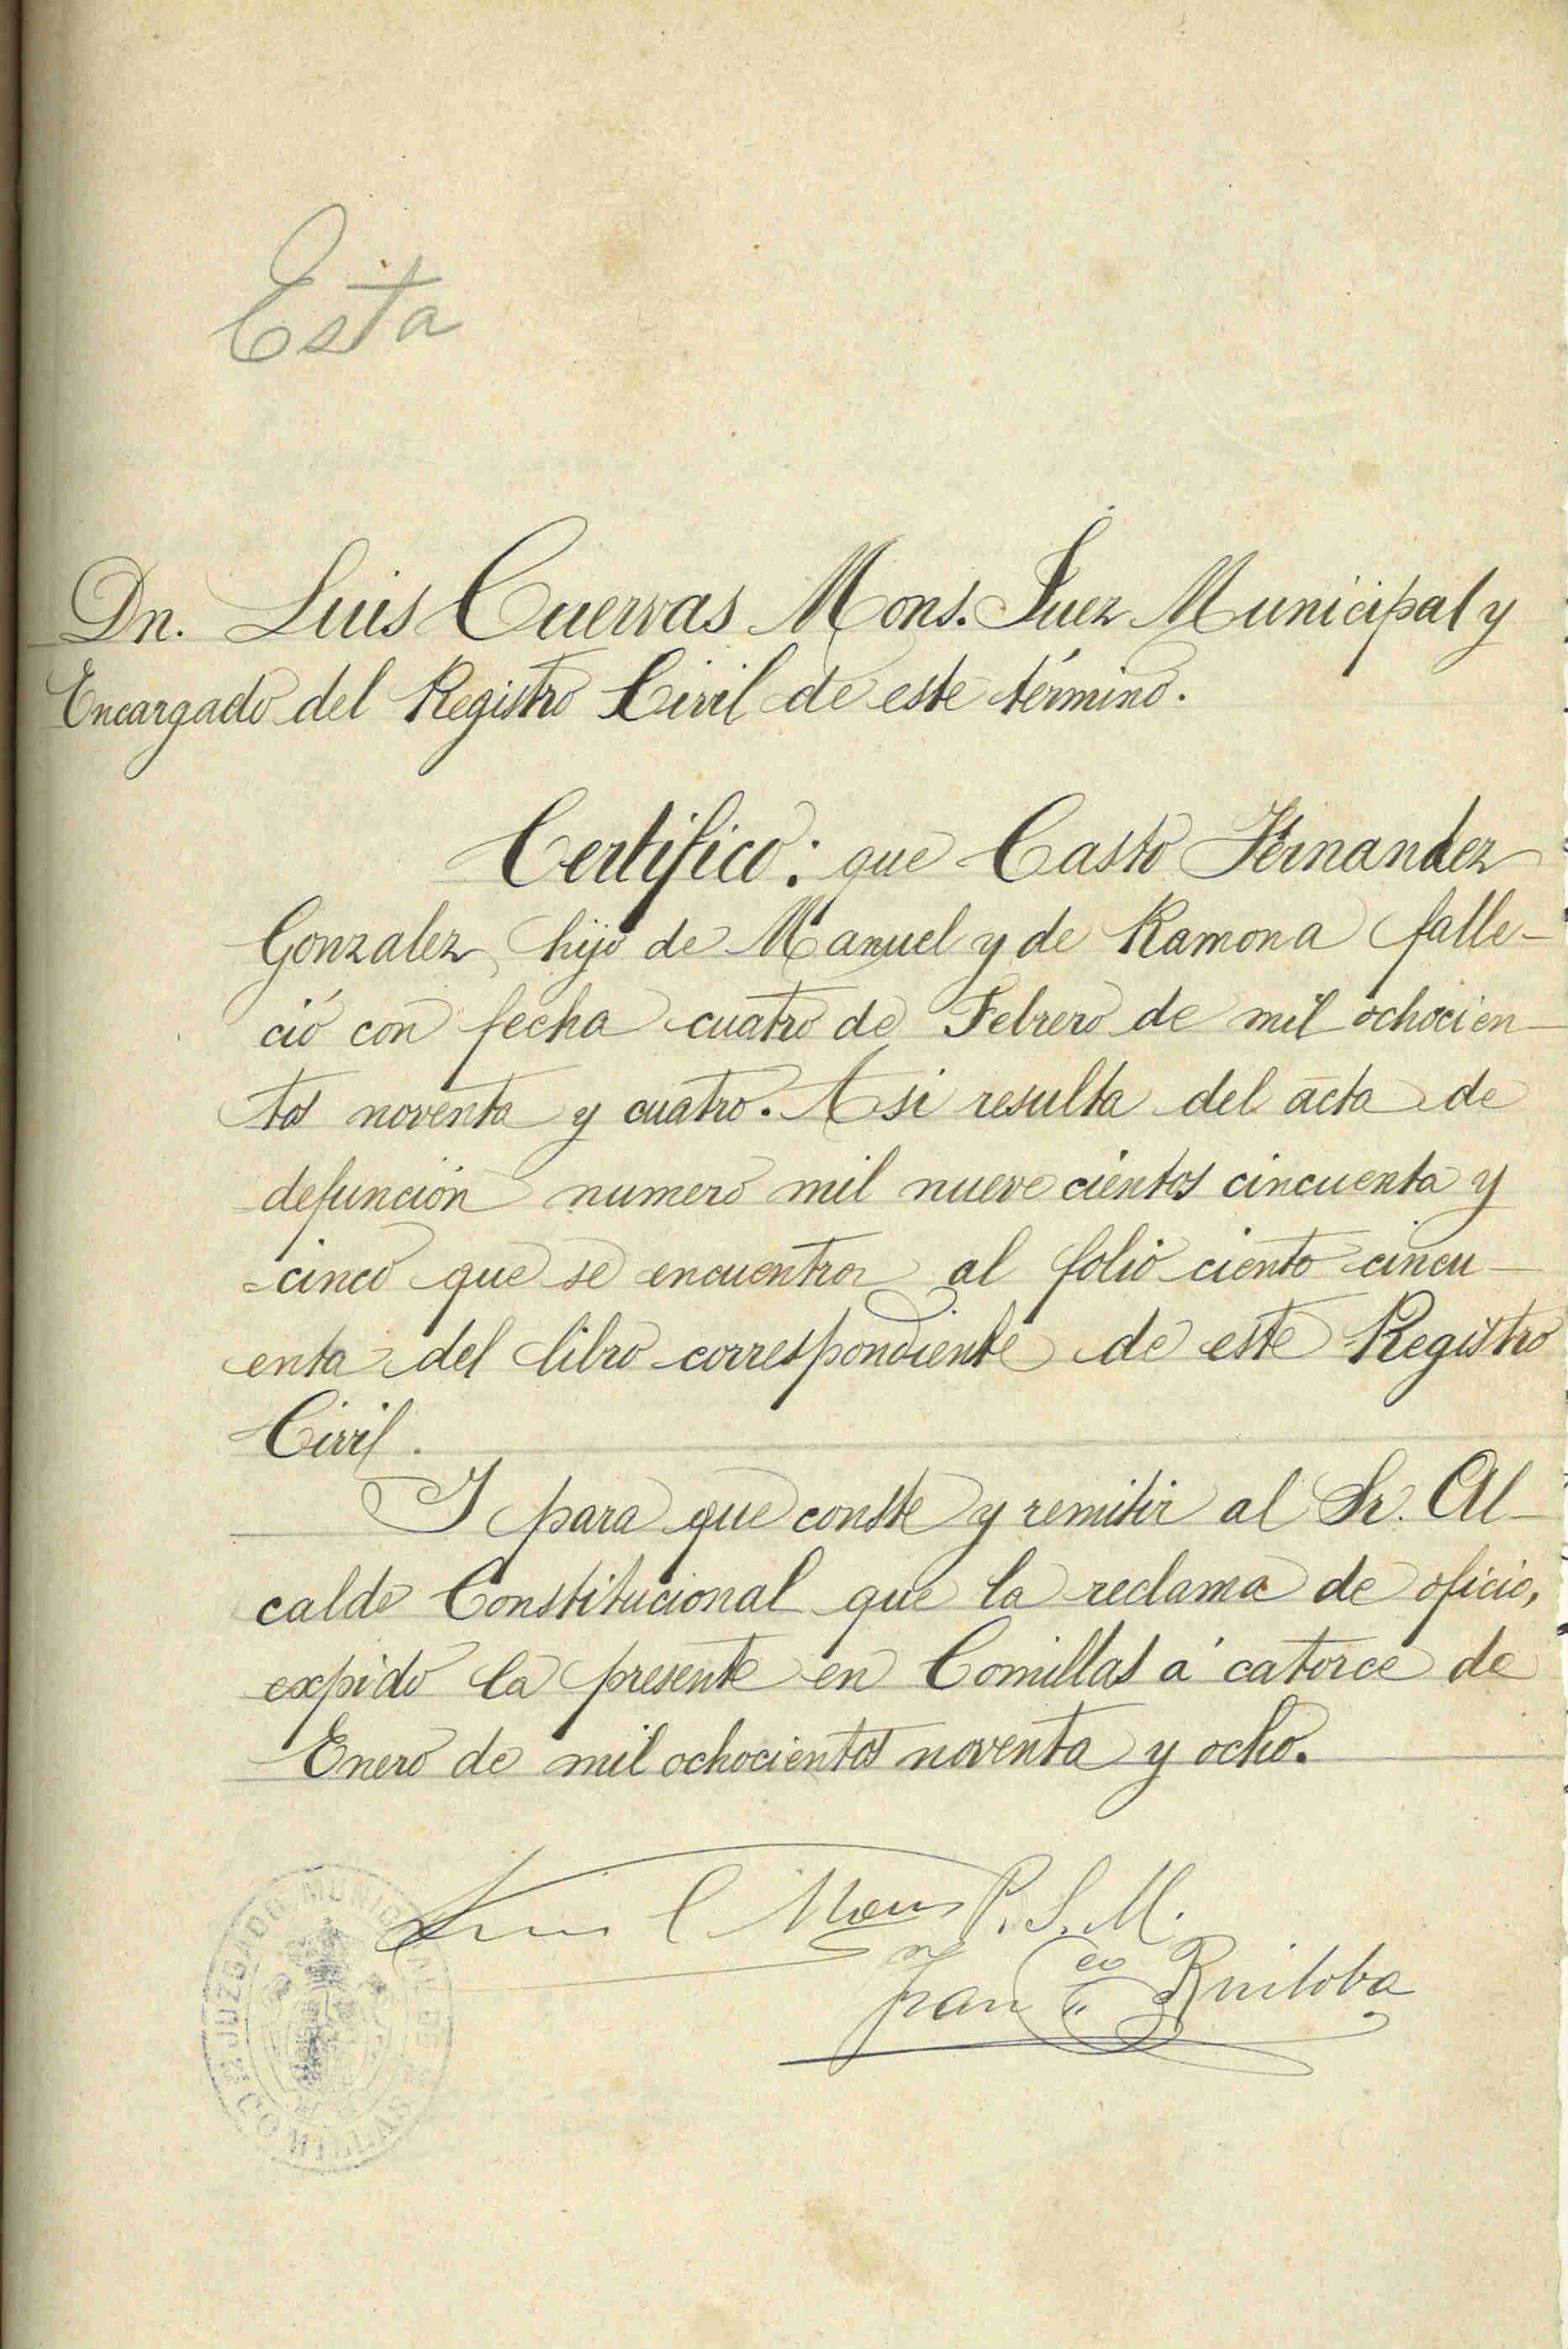 Esta
Dn. Luis Cuervas Mons. Juez Municipal y
Encargado del Registro Civil de este término.
Certifico: que Casto Fernandez
Gonzalez, hijo de Manuel y de Ramona falle-
ció con fecha cuatro de Febrero de mil ochocien-
tos noventa y cuatro. Asi resulta del acta de
defunción numero mil nuevecientos cincuenta y
cinco que se encuentra al folio ciento cincu-
enta del libro correspondiente de este Registro
Civil.
Y para que conste y remitir al Sr. Al-
calde Constitucional que la reclama de oficio,
expido la presente en Comillas á catorce de
Enero de mil ochocientos noventa y ocho.
Luis C Mons
P. S. M.
Fran co Ruiloba
JUZGADO MUNICIPAL DE
COMILLAS